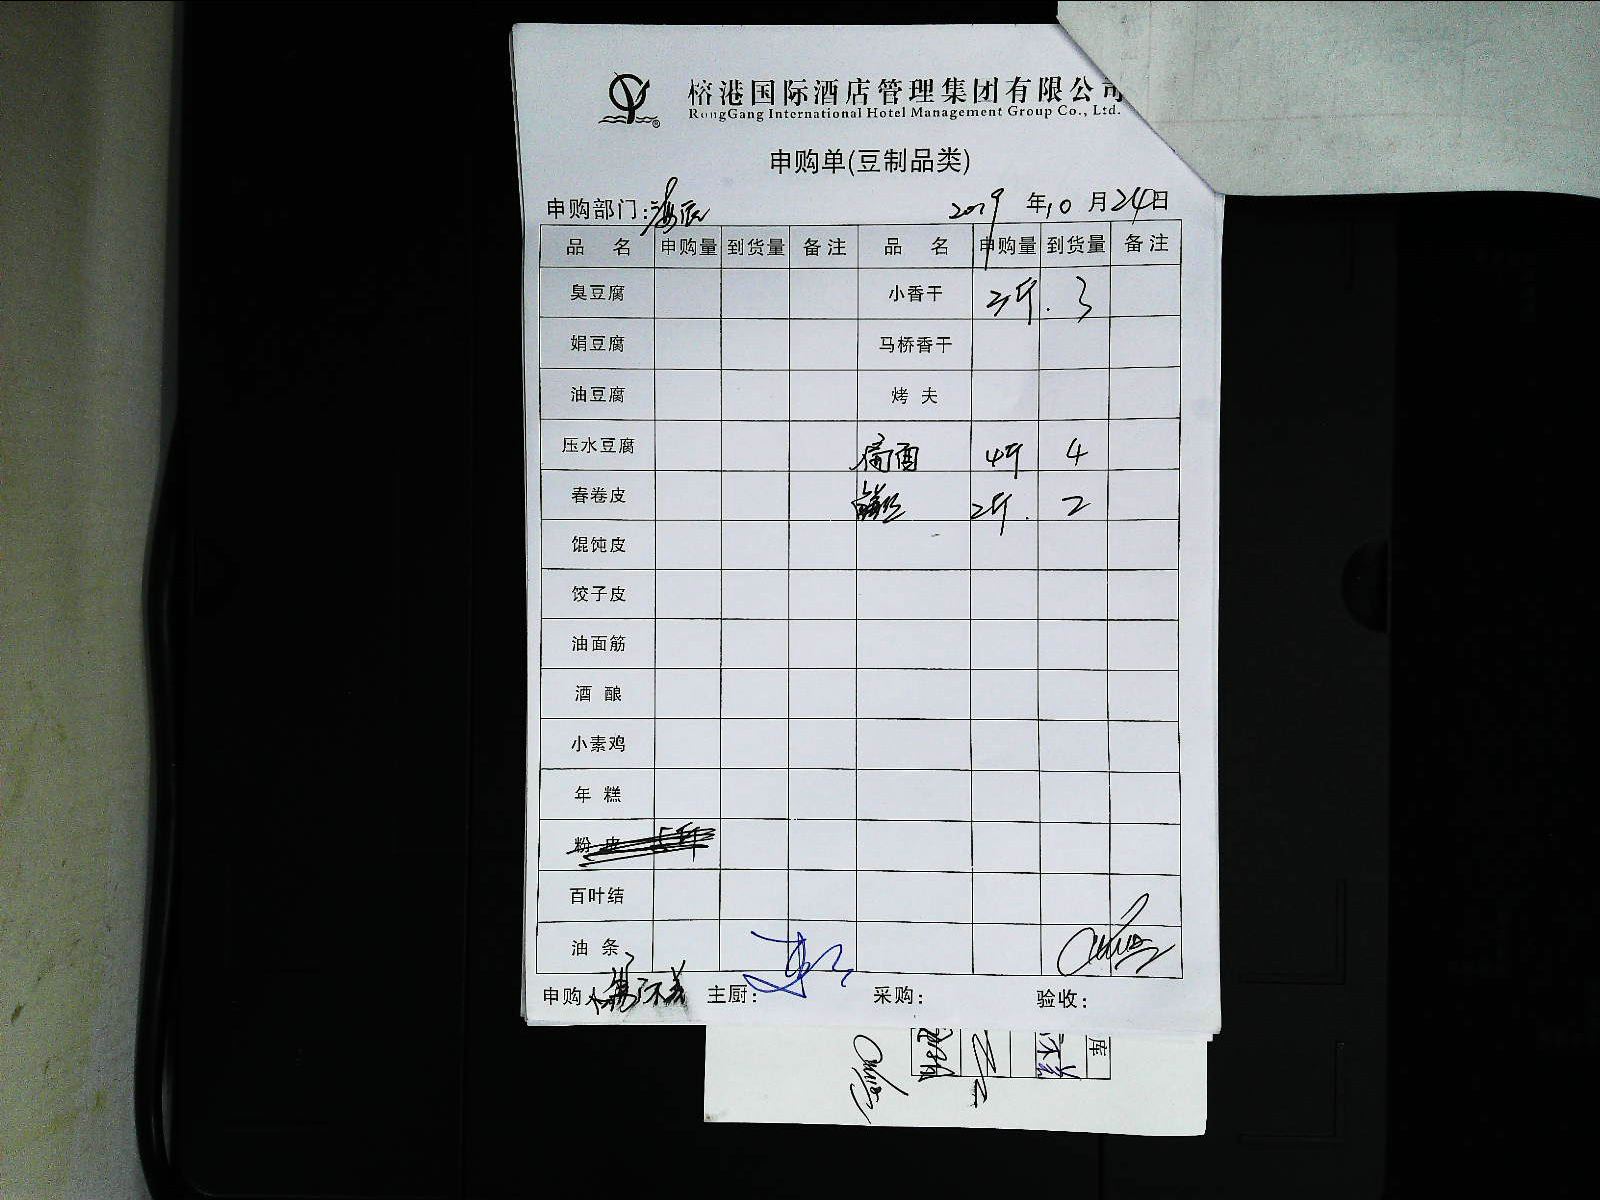 榕港国际酒店管理集团有限公司
RongGang International Hotel Management Group Co., Ltd.
申购单(豆制品类)
申购部门: 2019 年 10 月 24 日
品 名 申购量 到货量 备注 品 名 申购量 到货量 备注
臭豆腐 小香干 3斤. 3
娟豆腐 马桥香干
油豆腐 烤 夫
压水豆腐 4斤 4
春卷皮 2斤. 2
馄饨皮
饺子皮
油面筋
酒 酿
小素鸡
年 糕
粉 皮 5斤
百叶结
油 条
申购人 主厨: 采购: 验收:
库